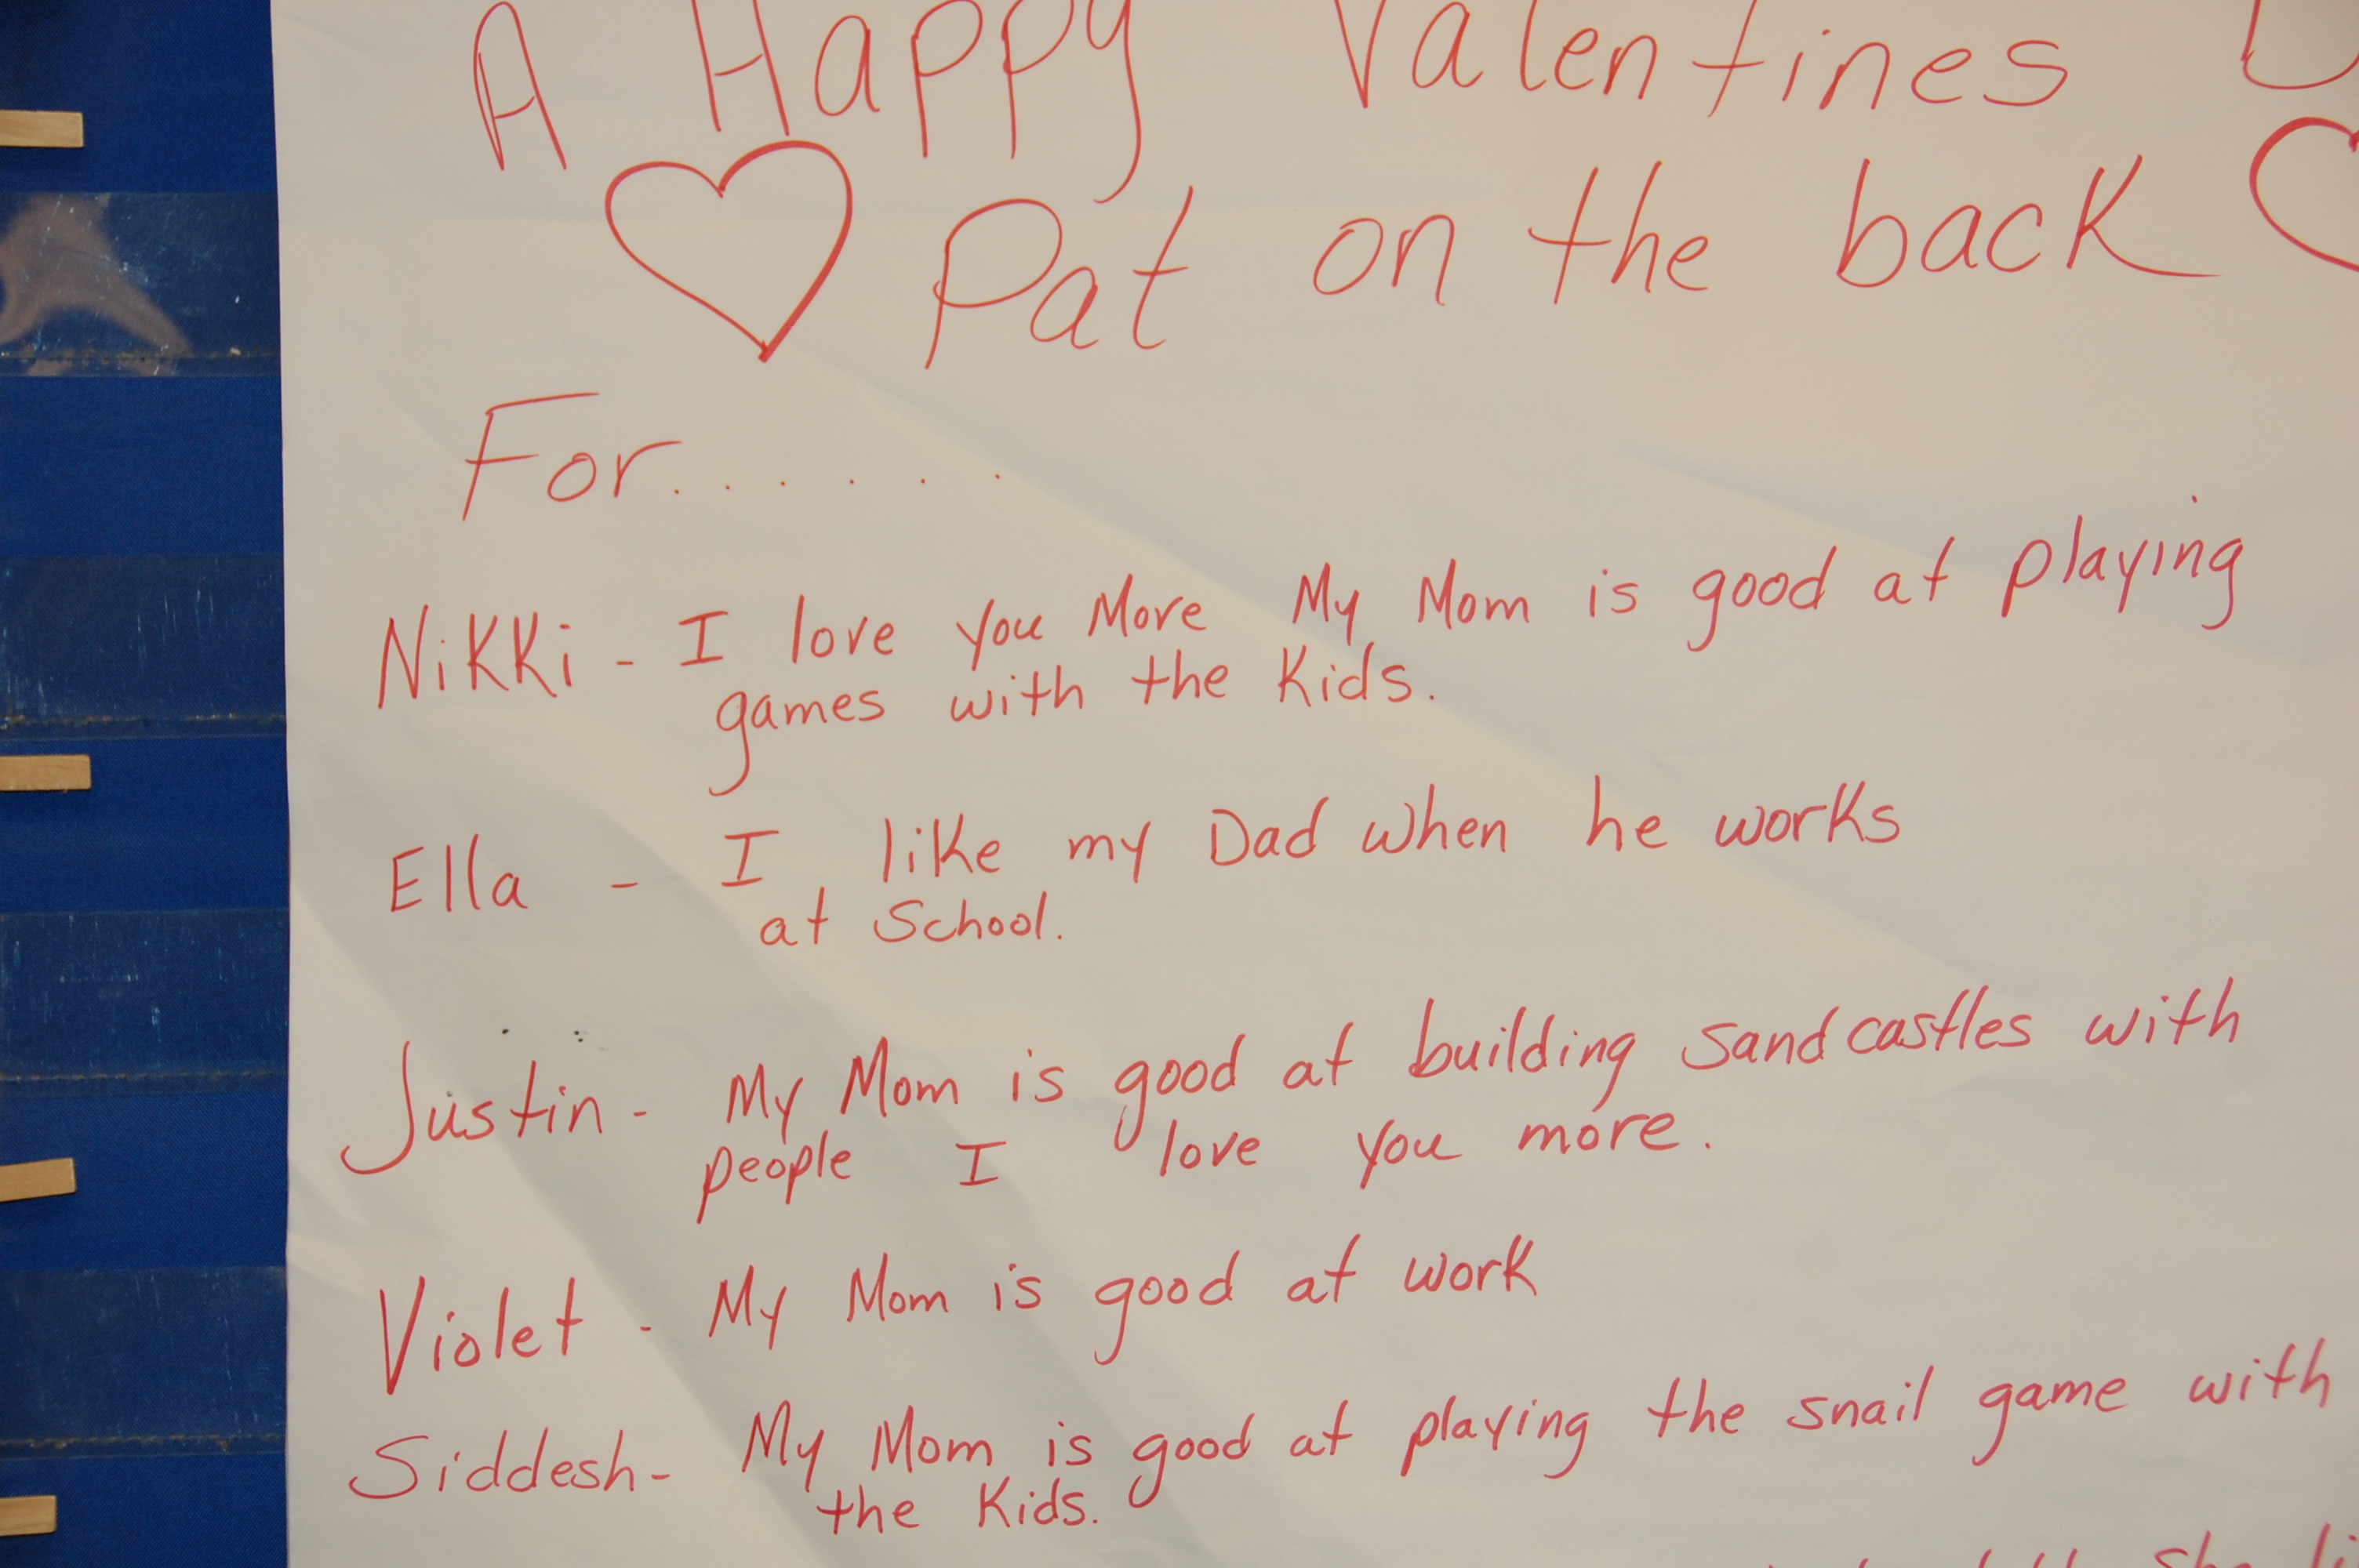 A Happy Valentines
Pat on the back
For......
Nikki - I love you More My Mom is good at playing
games with the Kids.
Ella - I like my Dad when he works
at School.
Justin - My Mom is good at building sandcastles with
people I love you more.
Violet - My Mom is good at work
Siddesh - My Mom is good at playing the snail game with
the Kids.